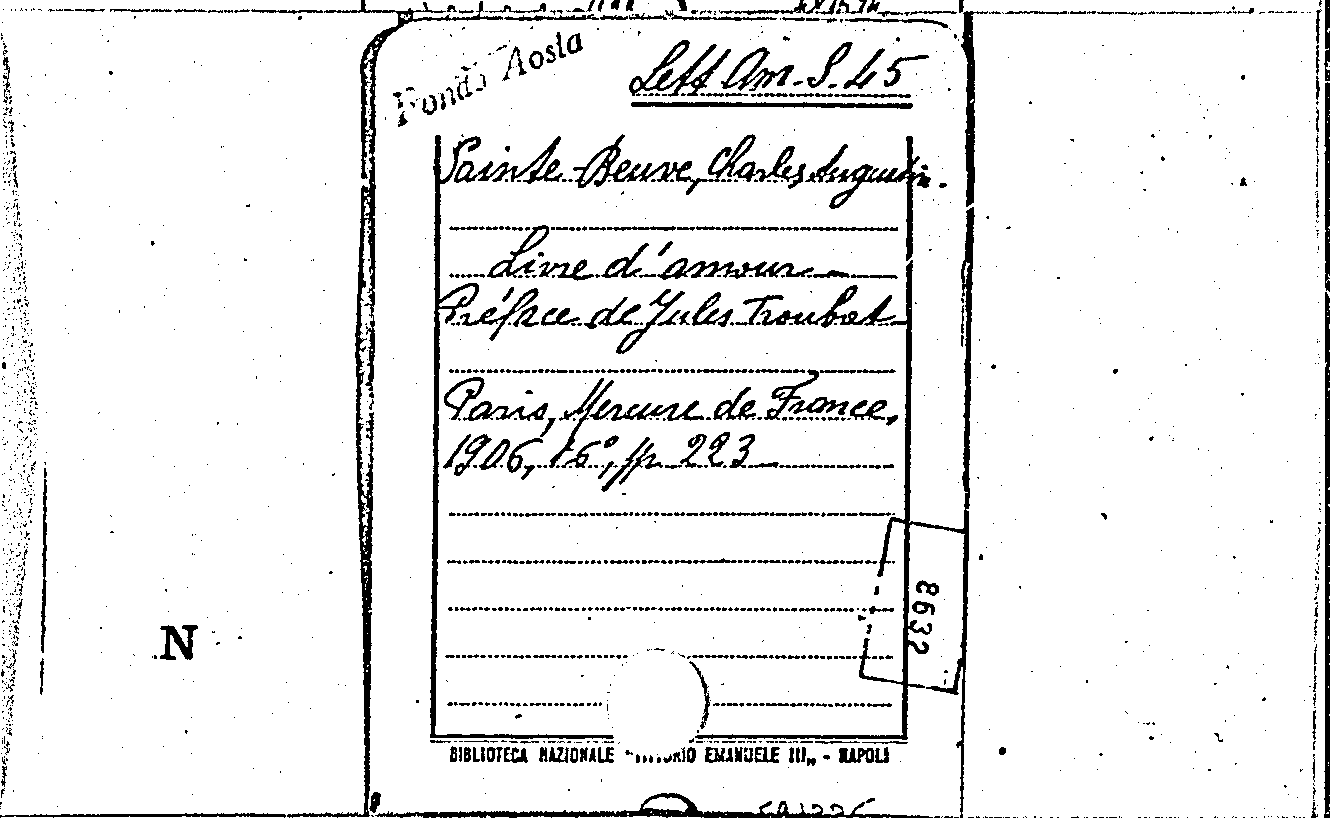 Fondo Aosta
Lett Am. S. 45
Sainte-Beuve, Charles Augustin.
Livre d'amour.
Préface de Jules Troubat
Paris, Mercure de France,
1906, 16°, pp. 223
8632
N
BIBLIOTECA NAZIONALE EMANUELE III„ - NAPOLI